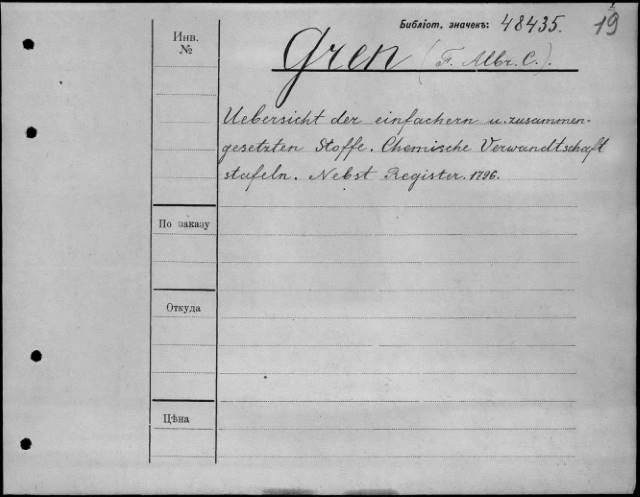 Библіот. значекъ: 48435.
19
Инв.
№
Gren (F. Albr. C.).
Uebersicht der einfachern u. zusammen-
gesetzten Stoffe. Chemische Verwandtschaft
stafeln. Nebst Register. 1796.
По заказу
Откуда
Цѣна